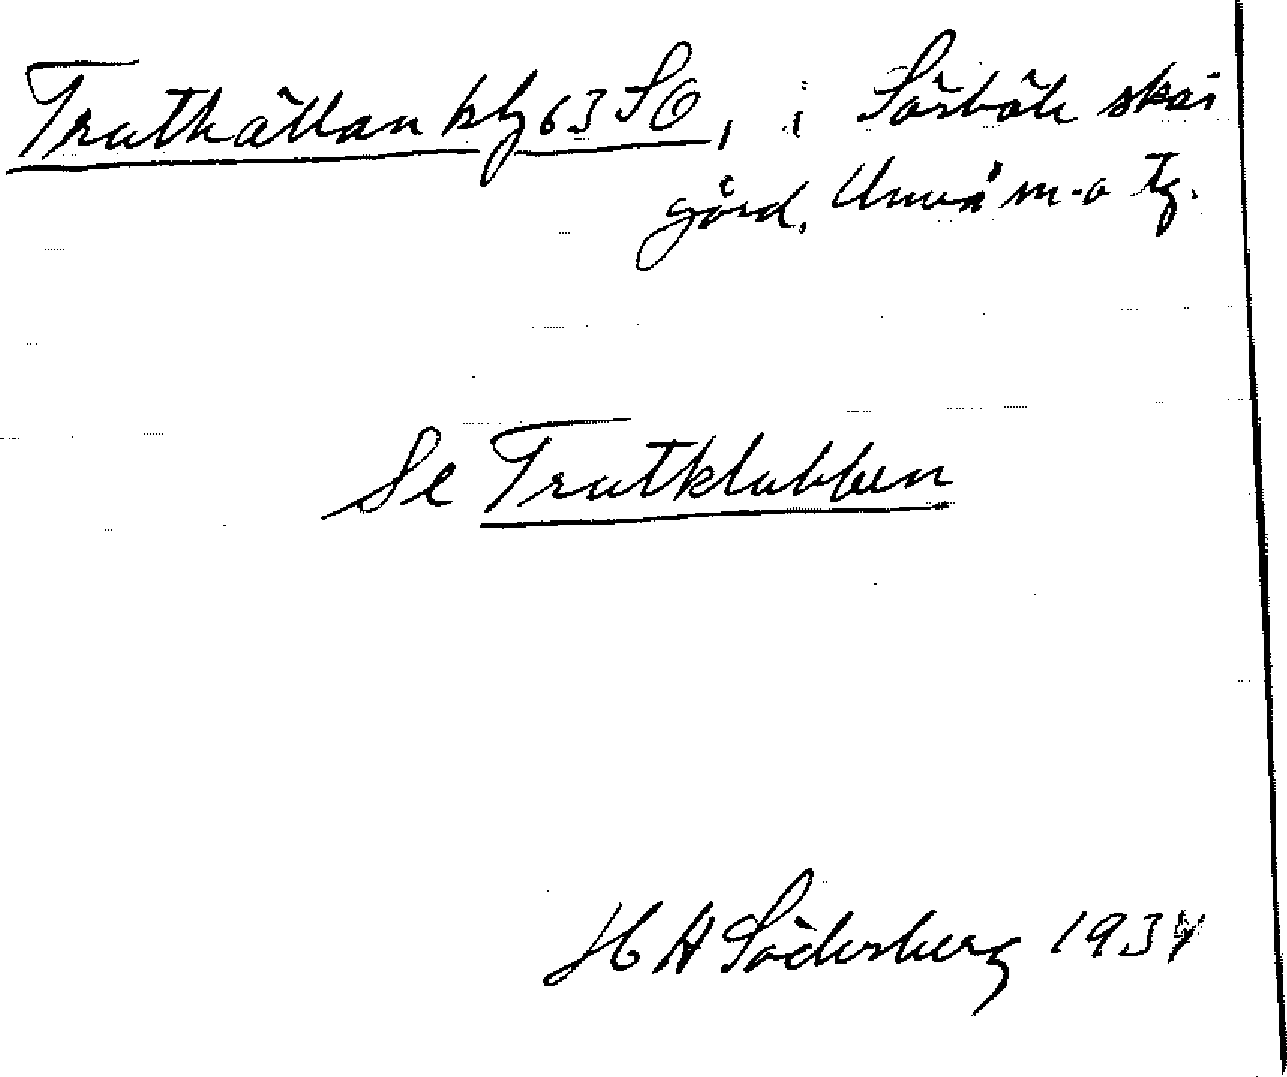 Truthällan kbg 63 SO, i Sörböle skär
gård, Umeå m-o Tg.
Se Trutklabben
H A Söderberg 1934